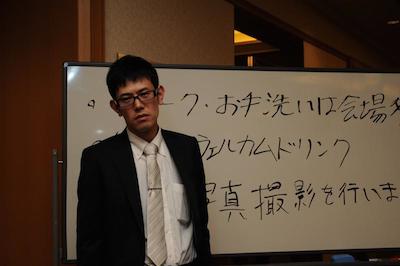 ーク・お手洗いは会場外
ウェルカムドリンク
写真撮影を行いま